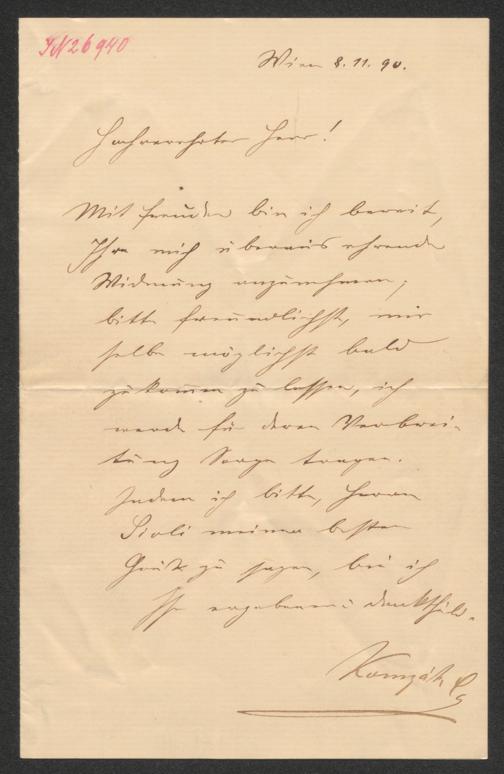 IN 26940
Wien 8. 11. 90.
Hochverehrter Herr!
Mit Freuden bin ich bereit,
Ihre mich überaus ehrende
Widmung anzunehmen;
bitte freundlichst, mir
selbe möglichst bald
zukommen zu lassen, ich
werde für deren Verbrei-
tung Sorge tragen.
Indem ich bitte, Herrn
meine besten
Grüße zu sagen, bin ich
Ihr ergebener u. dankschuld.
Komzák